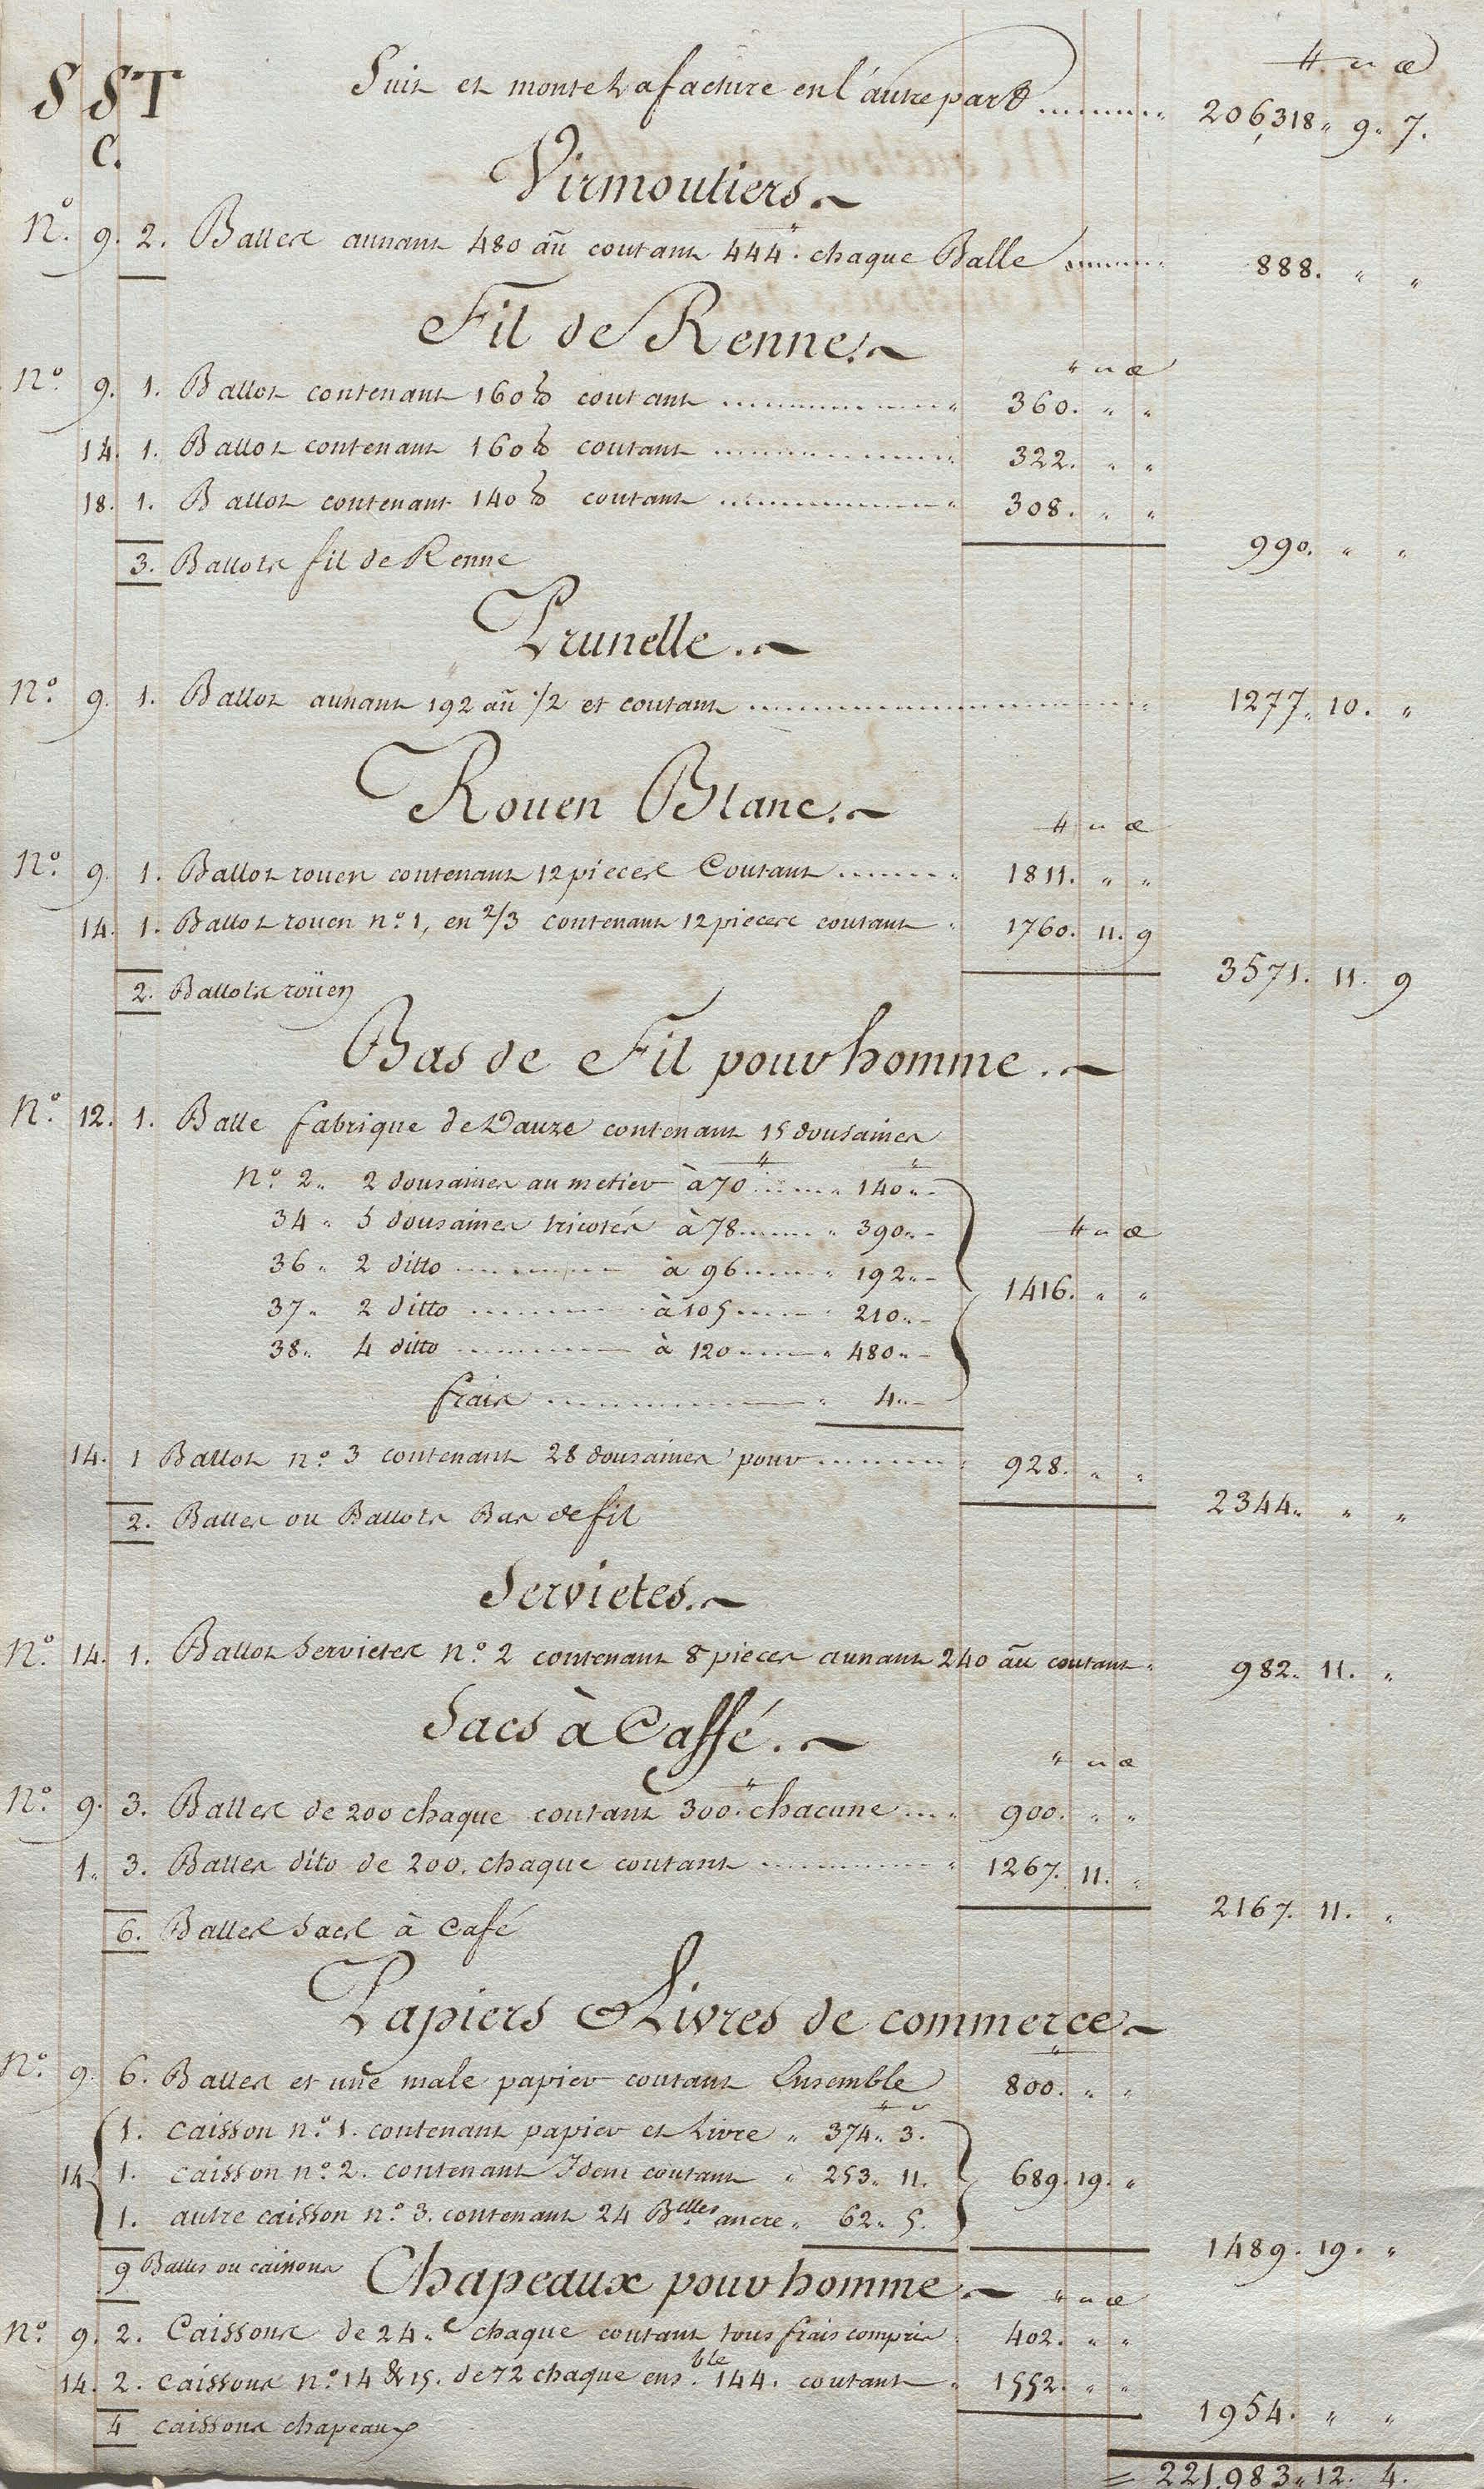 SST Suit et monte La facture en l'autre part ........ 206,318" 9" 7.
C.
₶ s d
Virmoutiers.~
N.º 9. 2. Balles aunant 480 aũ coutant 444.₶ chaque Balle ........ 888. " "
Fil de Renne.~
₶ s d
N.º 9. 1. Ballot contenant 160 ℔ coutant ........ 360. " "
14. 1. Ballot contenant 160 ℔ coutant ........ 322. " "
18. 1. Ballot contenant 140 ℔ coutant ........ 308. " "
990. " "
3. Ballots fil de Renne
Prunelle.~
N.º 9. 1. Ballot aunant 192 aũ 1/2 et coutant ........ 1277" 10. "
Rouen Blanc.~
₶ s d
N.º 9. 1. Ballot rouen contenant 12 pieces Coutant ........ 1811. " "
14. 1. Ballot rouen n.º 1, en 2/3 contenant 12 pieces coutant " 1760. 11. 9
3571. 11. 9
2. Ballots roüen
Bas de Fil pour homme.~
N.º 12. 1. Balle fabrique de Dauze contenant 15 dousaines
n.º 2" 2 dousaines au metier à 70₶ ........ 140₶"-
34" 5 dousaines tricotés à 78 ........ 390"-
₶ s d
36" 2 ditto ........ à 96 ........ 192"-
1416. " "
37" 2 ditto ........ à 105 ........ 210"-
38" 4 ditto ........ à 120 ........ 480"-
frais ........ 4"-
14. 1 Ballot n.º 3 contenant 28 dousaines pour ........ 928. " "
2344" " "
2. Balles ou Ballots Bas de fil
Servietes.~
N.º 14. 1. Ballot Servietes n.º 2 contenant 8 pieces aunant 240 aũ coutant " 982" 11. "
Sacs à Caffé.~
₶ s d
N.º 9. 3. Balles de 200 chaque coutant 300.₶ chacune ........ 900. " "
1" 3. Balles dito de 200. chaque coutant ........ 1267. 11. "
2167. 11. "
6. Balles Sacs à Café
Papiers & Livres de commerce~
N.º 9. 6. Balles et une male papier coutant Ensemble 800.₶ " "
1. Caisson n.º 1. contenant papier et Livre " 374₶" 3.
14 1. caisson n.º 2. contenant Idem coutant " 253" 11. 689. 19. "
1. autre caisson n.º 3. contenant 24 Belles ancre " 62" 5.
1489. 19. "
9 Balles ou caissons
Chapeaux pour homme.~
₶ s d
N.º 9. 2. Caissons de 24" chaque coutant tous frais compris 402. " "
14. 2. caissons n.º 14 & 15. de 72 chaque ens.ble 144. coutant " 1552. " "
1954. " "
4 caissons chapeaux
= 221,983" 12. 4.